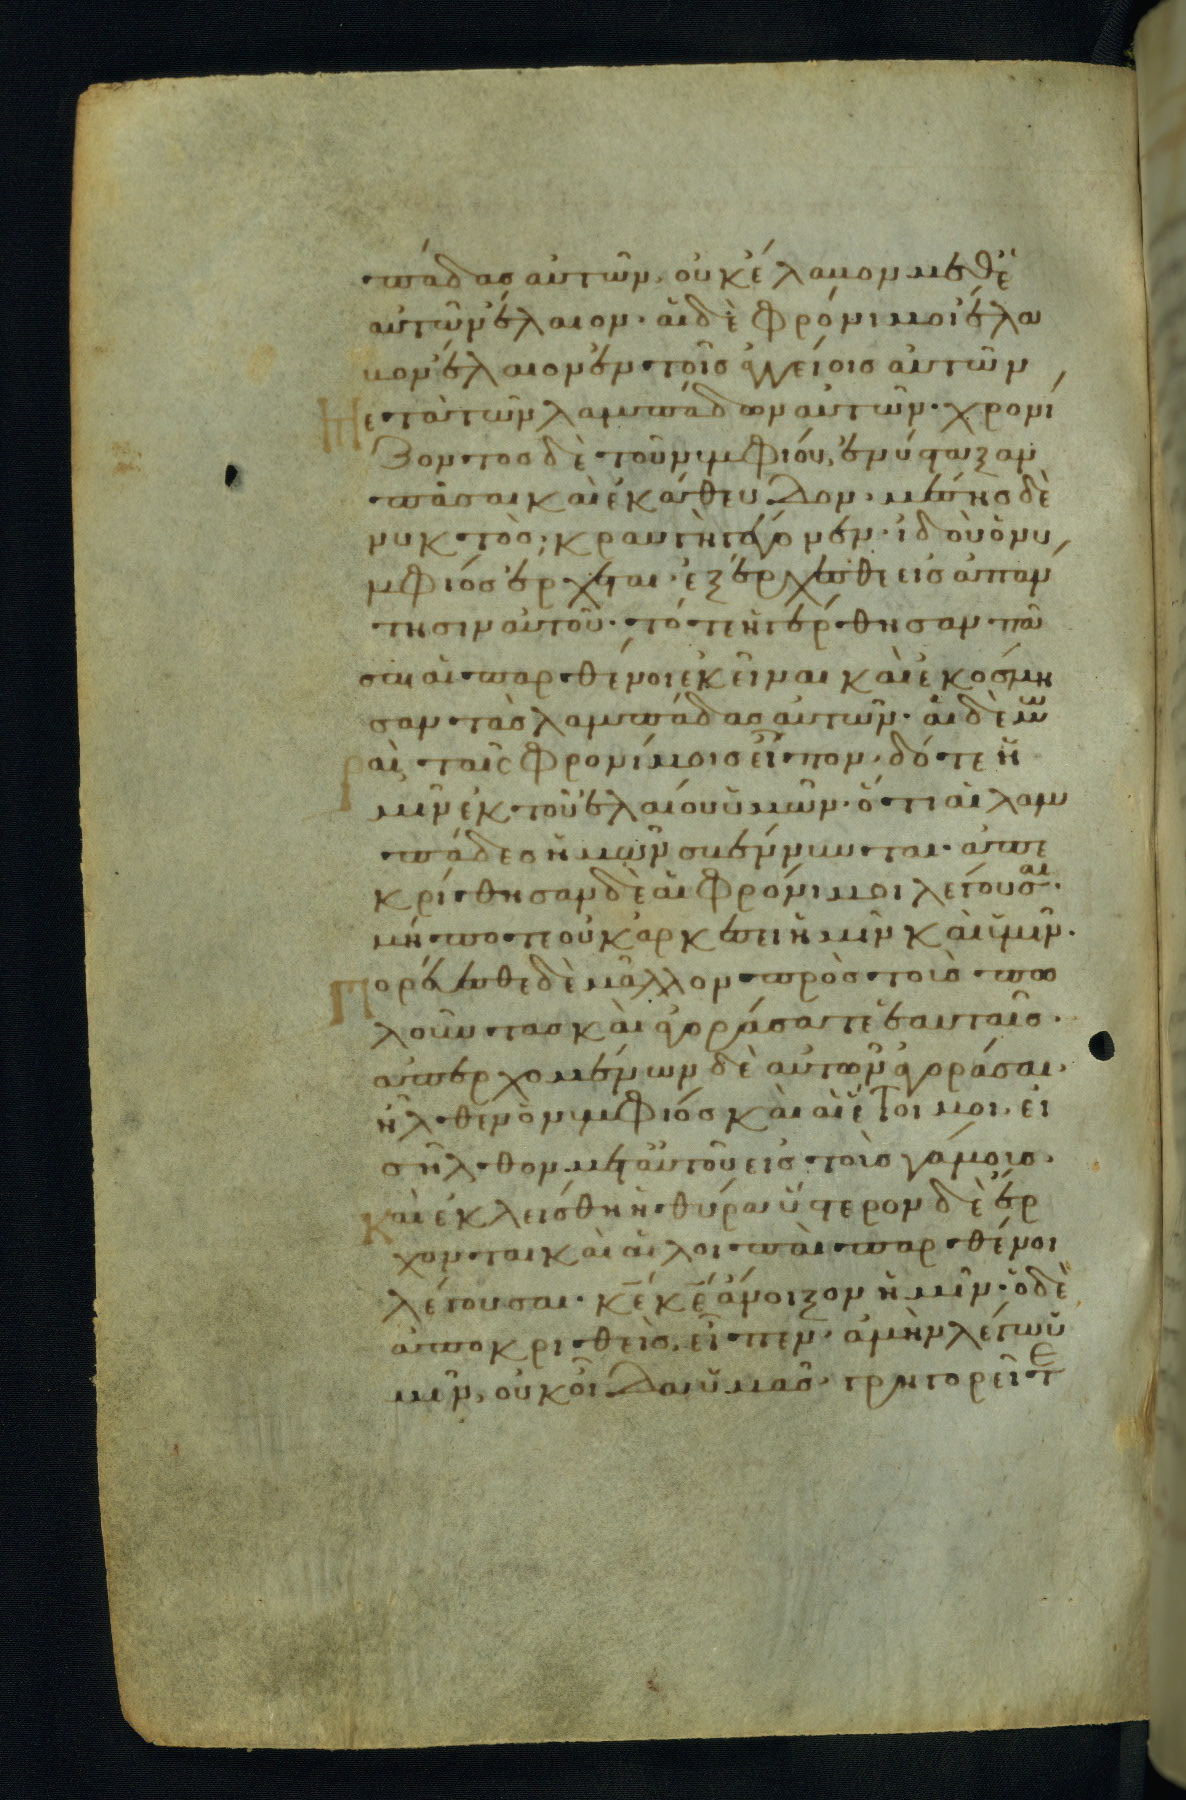 πάδας αὐτῶν, οὐκ ἔλαβον μεθ' ἑ
αυτῶν ἔλαιον. αἱ δὲ φρόνιμοι ἔλα
βον ἔλαιον ἐν τοῖς ἀγγείοις αὐτῶν
μετὰ τῶν λαμπάδων αὐτῶν. χρονί
ζοντος δὲ τοῦ νυμφίου, ἐνύσταξαν
πᾶσαι καὶ ἐκάθευδον. μέσης δὲ
νυκτὸς, κραυγὴ γέγονεν. ἰδοὺ ὁ νυ
μφίος ἔρχεται. ἐξέρχεσθε εἰς ἀπάν
τησιν αὐτοῦ. τότε ἠγέρθησαν πᾶ
σαι αἱ παρθένοι ἐκεῖναι καὶ ἐκόσμη
σαν τὰς λαμπάδας αὐτῶν. αἱ δὲ μω
ραὶ ταῖς φρονίμοις εἶπον. δότε ἡ
μῖν ἐκ τοῦ ἐλαίου ὑμῶν. ὅτι αἱ λαμ
πάδες ἡμῶν σβέννυνται. ἀπε
κρίθησαν δὲ αἱ φρόνιμοι λέγουσαι.
μήποτε οὐκ ἀρκέσει ἡμῖν καὶ ὑμῖν.
πορεύεσθε δὲ μᾶλλον πρὸς τοὺς πω
λοῦντας καὶ ἀγοράσατε ἑαυταῖς.
ἀπερχομένων δὲ αὐτῶν ἀγοράσαι,
ἦλθεν ὁ νυμφίος καὶ αἱ ἕτοιμοι. εἰ
σῆλθον μετ' αὐτοῦ εἰς τοὺς γάμους.
καὶ ἐκλείσθη ἡ θύρα ὕστερον δὲ ἔρ
χονται καὶ αἱ λοιπαὶ παρθένοι
λέγουσαι. κε κε ἄνοιξον ἡμῖν. ὁ δὲ
ἀποκριθεὶς, εἶπεν. ἀμὴν λέγω ὑ
μῖν, οὐκ οἶδα ὑμᾶς. γρηγορεῖτε